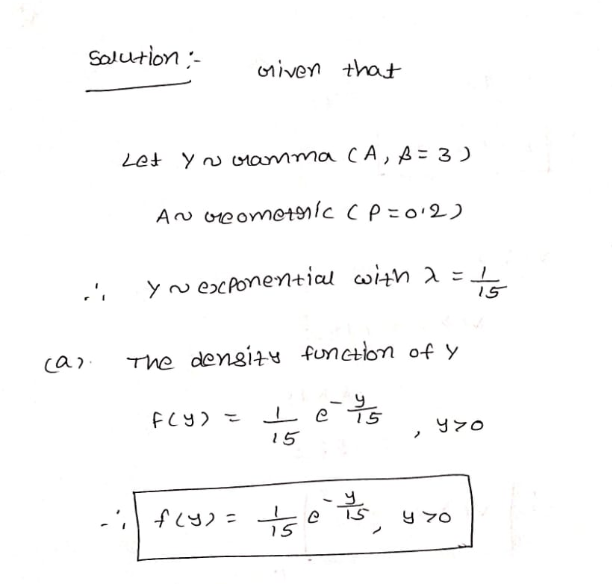 Solution :-
Given that
Let Y ~ Gamma (A, β = 3)
A ~ Geometric (P = 0.2)
∴ Y ~ exponential with λ = 1/15
(a). The density function of Y
f(y) = 1/15 e^(-y/15) , y>0
∴ f(y) = 1/15 e^(-y/15) , y>0